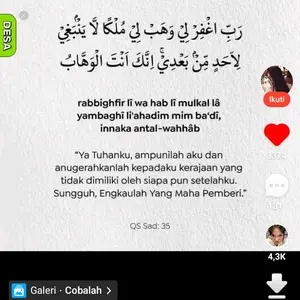 DESA
رَبِّ اغْفِرْ لِيْ وَهَبْ لِيْ مُلْكًا لَّا يَنْۢبَغِيْ
لِاَحَدٍ مِّنْۢ بَعْدِيْۚ اِنَّكَ اَنْتَ الْوَهَّابُ
rabbighfir lî wa hab lî mulkal lâ
yambaghî li'aḫadim mim ba‘dî,
innaka antal-wahhâb
“Ya Tuhanku, ampunilah aku dan
anugerahkanlah kepadaku kerajaan yang
tidak dimiliki oleh siapa pun setelahku.
Sungguh, Engkaulah Yang Maha Pemberi.”
QS Sad: 35
Ikuti
4,3K
Galeri · Cobalah >